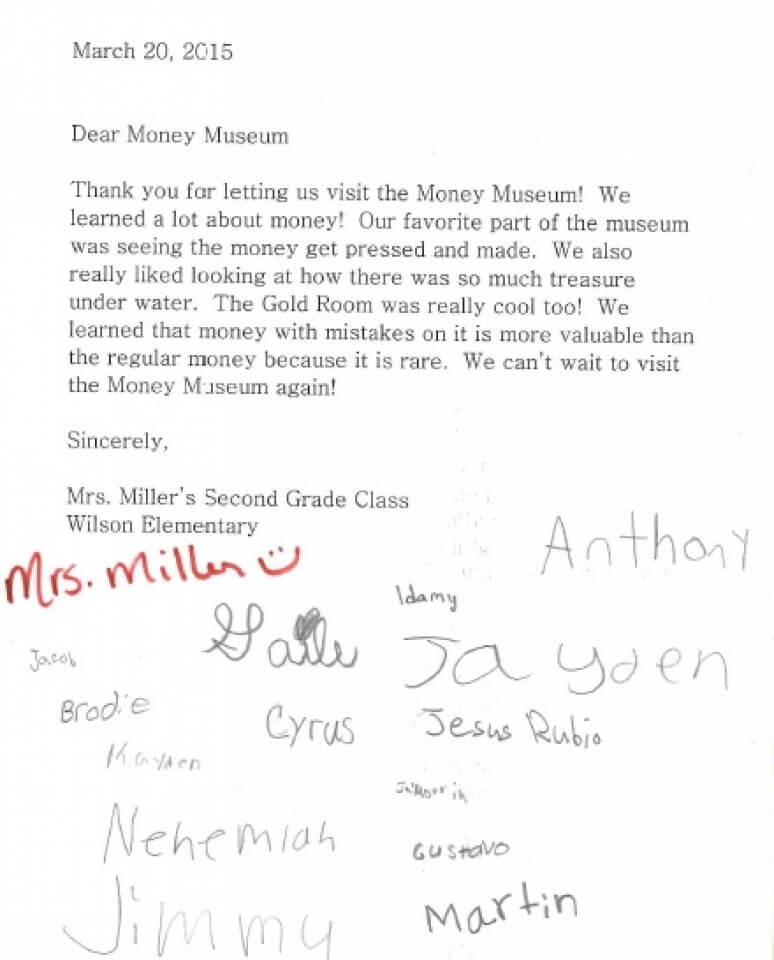 March 20, 2015
Dear Money Museum
Thank you for letting us visit the Money Museum! We
learned a lot about money! Our favorite part of the museum
was seeing the money get pressed and made. We also
really liked looking at how there was so much treasure
under water. The Gold Room was really cool too! We
learned that money with mistakes on it is more valuable than
the regular money because it is rare. We can't wait to visit
the Money Museum again!
Sincerely,
Mrs. Miller's Second Grade Class
Wilson Elementary
Anthony
Mrs. Miller
Idamy
Jacob
Jayden
Brodie
Cyrus
Jesus Rubio
Kayden
Nehemiah
Gustavo
Jimmy
Martin